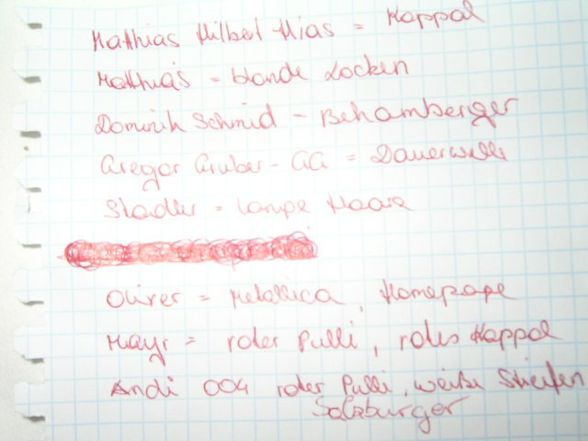 Matthias Hilbert-Hias = Kappal
Matthias = blonde Locken
Dominik Schmid = Behamberger
Gregor Gruber - GG = Dauerwelle
Stadler = lange Haare
Oliver = Metallica, Homepage
Mayr = roter Pulli, rotes Kappal
Andi 004 roter Pulli, weiße Streifen
Salzburger